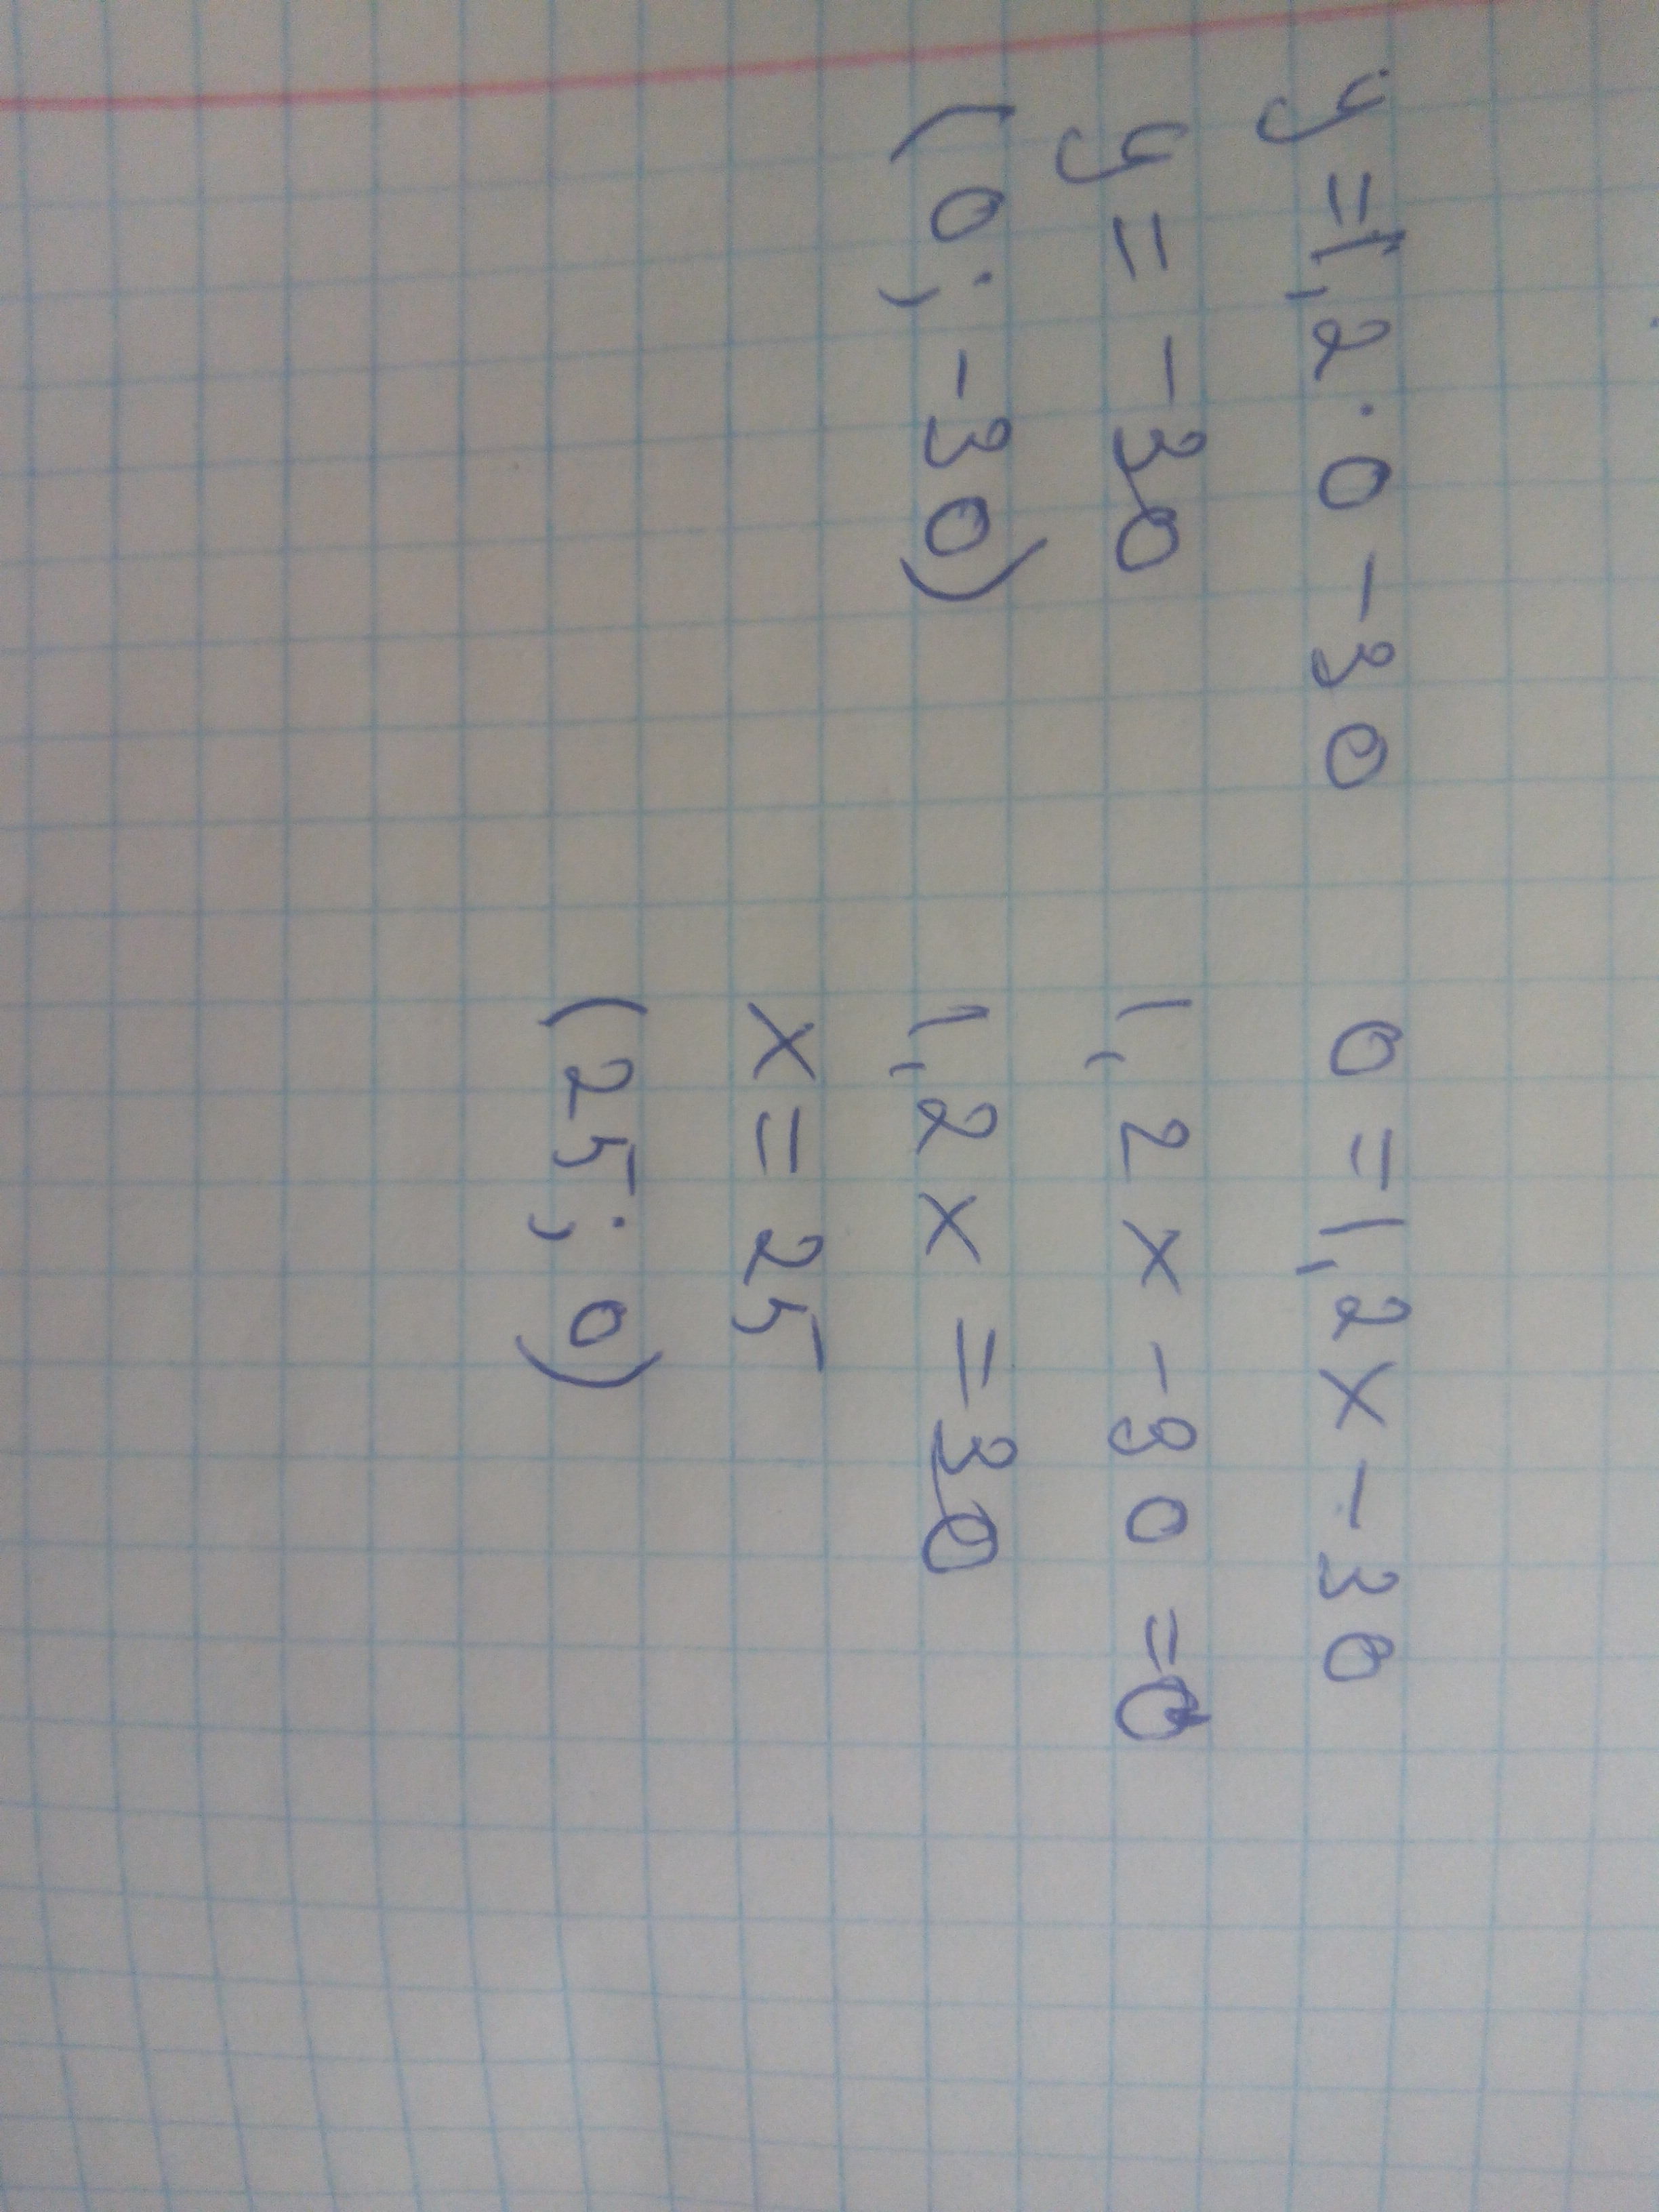 y = 1,2 · 0 - 30
y = -30
(0; -30)
0 = 1,2x - 30
1,2x - 30 = 0
1,2x = 30
x = 25
(25; 0)